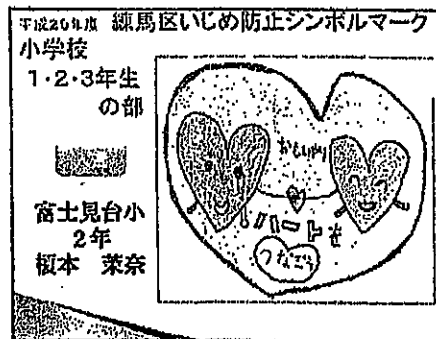 練馬区いじめ防止シンボルマーク
小学校
1・2・3年生
の部
富士見台小
2年
榎本 茉奈
おもいやり
つなごう